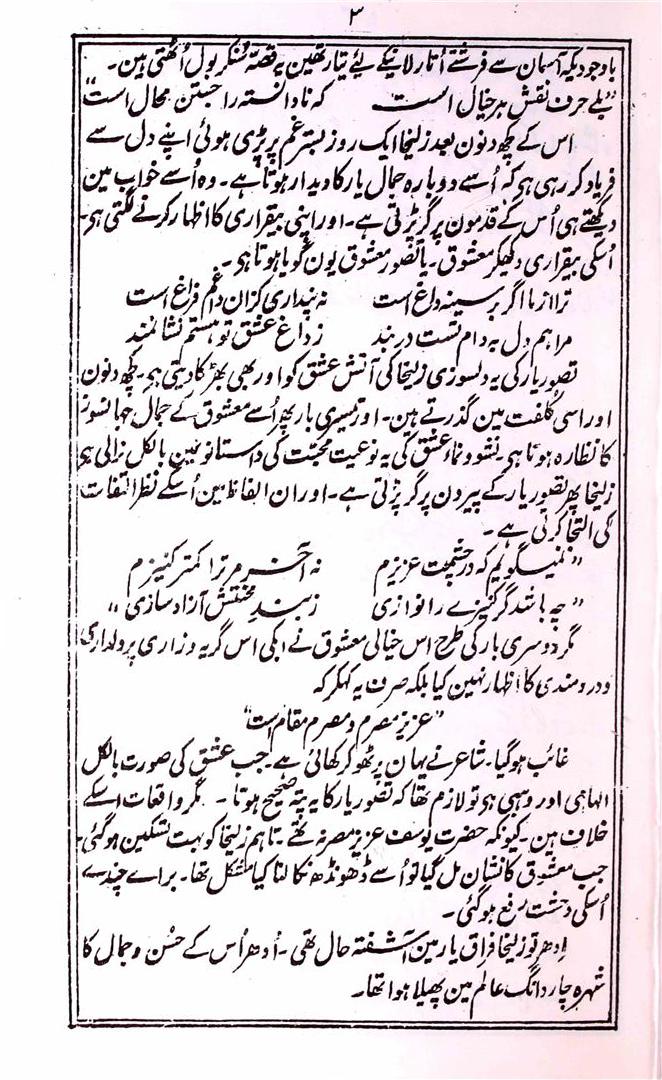 ۳
باوجودیکہ آسمان سے فرشتے اُتار لانیکے لیے تیار تھین یہ قصّہ سُنکر بول اُٹھتی ہین۔
”بلے حرف نقش ہر خیال است که نادانسته را جستن محال است“
اس کے کچھ دنون بعد زلیخا ایک روز بسترِ غم پر پڑی ہوئی اپنے دل سے
فریاد کر رہی ہی کہ اُسے دوبارہ جمال یار کا دیدار ہوتا ہے۔ وہ اُسے خواب مین
دیکھتے ہی اُس کے قدمون پر گر پڑتی ہے۔ اور اپنی بیقراری کا اظہار کرنے لگتی ہی۔
اُسکی بیقراری دیکھکر معشوق۔ یا تصور معشوق یون گویا ہوتا ہی۔
ترا از ما اگر بر سینه داغ است نه پنداری کزان داغم فراغ است
مرا هم دل به دام تست در بند ز داغ عشق تو هستم نشانمند
تصور یار کی یہ دلسوزی زلیخا کی آتش عشق کو اور بھی بھڑکا دیتی ہی۔ کچھ دنون
اور اسی کُلفت مین گذرتے ہین۔ اور تیسری بار پھر اُسے معشوق کے جمال جہانسوز
کا نظارہ ہوتا ہی۔ نشوونماء عشق کی یہ نوعیت محبت کی داستانونمین بالکل نرالی ہی
زلیخا پھر تصور یار کے پیرون پر گر پڑتی ہے۔ اور ان الفاظ مین اُسکے نظر التفات
کی التجا کرتی ہے۔
”نمیگویم که در چشمت عزیزم نه آخر مر ترا کمتر کنیزم
”چه باشد گر کنیزے را نوازی ز بندِ محنتش آزاد سازی“
مگر دوسری بار کی طرح اس خیالی معشوق نے ابکی اس گریہ و زاری پر دلداری
و دردمندی کا اظہار نہین کیا بلکہ صرف یہ کہکر کہ
”عزیز مصرم و مصرم مقام است“
غائب ہوگیا۔ شاعر نے یہان پر ٹھوکر کھائی ہے۔ جب عشق کی صورت بالکل
الہامی اور وہبی ہو تو لازم تھا کہ تصور یار کا یہ پتہ صحیح ہوتا۔ مگر واقعات اسکے
خلاف ہین۔ کیونکہ حضرت یوسف عزیز مصر نہ تھے۔ تاہم زلیخا کو بہت تسکین ہوگئی۔
جب معشوق کا نشان مل گیا تو اُسے ڈھونڈھ نکالنا کیا مشکل تھا۔ براے چندے
اُسکی وحشت رفع ہوگئی۔
اِدھر تو زلیخا فراق یار مین آشفتہ حال تھی۔ اُدھر اُس کے حُسن و جمال کا
شہرہ چار دانگ عالم مین پھیلا ہوا تھا۔